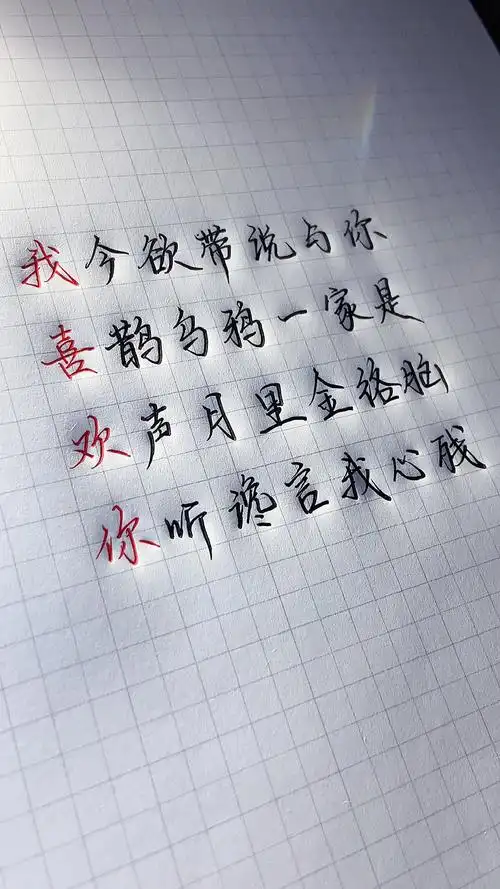 我今欲带说与你
喜鹊乌鸦一家是
欢声月里金络脑
你听谗言我心戕